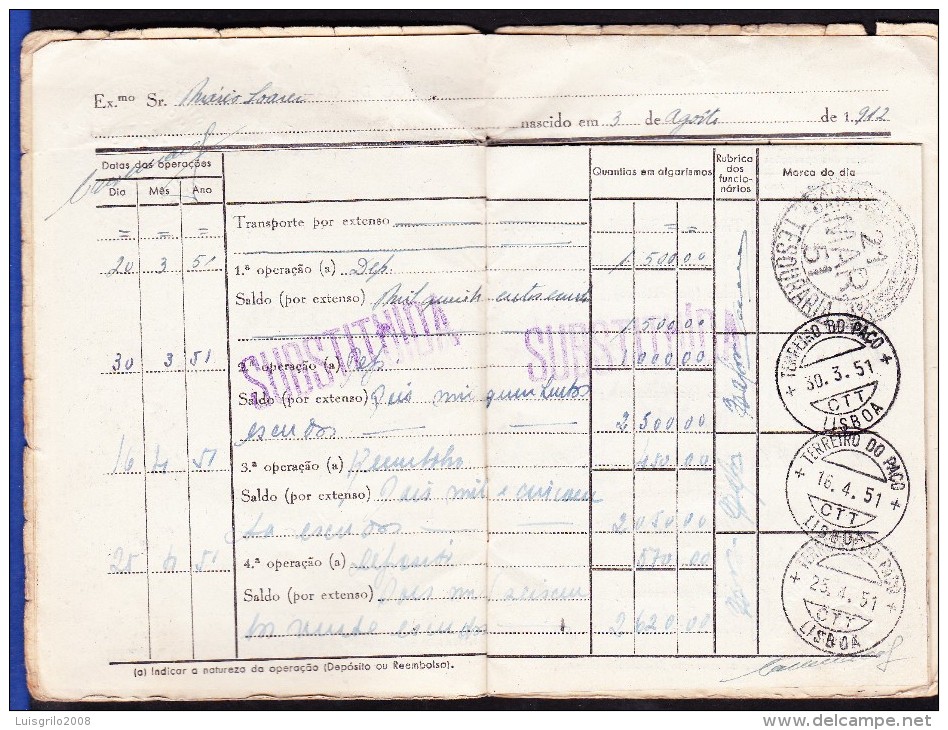 Ex.mo Sr. Mário Soares
nascido em 3 de Agosto de 1.912
Datas das operações Quantias em algarismos Rubrica dos funcionários Marca do dia
Dia Mês Ano
Transporte por extenso
= = = = =
20 3 51 1.ª operação (a) Dep. 1 500 00
Saldo (por extenso) Mil quinhentos escudos 1 500 00
SUBSTITUIDA SUBSTITUIDA
30 3 51 2.ª operação (a) Dep. 1 000 00
Saldo (por extenso) Dois mil quinhentos
escudos 2 500 00
16 4 51 3.ª operação (a) Reembolso 450 00
Saldo (por extenso) Dois mil e cincoen
ta escudos 2 050 00
25 4 51 4.ª operação (a) Deposito 570 00
Saldo (por extenso) Dois mil seiscen
tos vinte escudos 2 620 00
(a) Indicar a natureza da operação (Depósito ou Reembolso).
21 MAR 51
TESOURARIA
TERREIRO DO PAÇO
30.3.51
CTT
LISBOA
TERREIRO DO PAÇO
16.4.51
CTT
LISBOA
TERREIRO DO PAÇO
25.4.51
CTT
LISBOA
Luisgrilo2008
www.delcampe.net